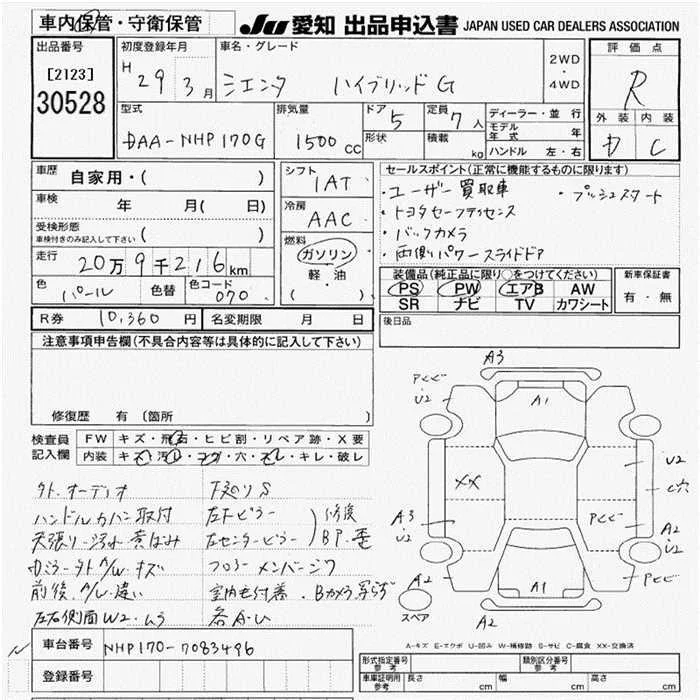 車内保管・守衛保管
JU 愛知 出品申込書 JAPAN USED CAR DEALERS ASSOCIATION
出品番号
[2123]
30528
初度登録年月
H 29 3月
車名・グレード
シエンタ ハイブリッドG
2WD
・
4WD
評価点
R
外装 内装
D C
型式
DAA-NHP170G
排気量
1500 CC
ドア 5
形状
定員 7人
積載 kg
ディーラー・並行
モデル年式 年
ハンドル 左・右
車歴 自家用・( )
車検 年 月( 日)
受検形態
車検付きのみ記入して下さい ( )
走行 20万9千216km
色 パール 色替 色コード 070
シフト
IAT
冷房
AAC
燃料
ガソリン
軽油
( )
セールスポイント(正常に機能するものに限ります)
・ユーザー買取車 ・プッシュスタート
・トヨタセーフティセンス
・バックカメラ
・両側パワースライドドア
装備品(純正品に限り○をつけてください)
PS PW エアB AW
SR ナビ TV カワシート
新車保証書
有・無
R券 10,360円 名変期限 月 日
後日品
注意事項申告欄(不具合内容等は具体的に記入して下さい)
修復歴 有 〔箇所 〕
検査員記入欄
FW キズ・飛石・ヒビ割・リペア跡・X要
内装 キズ・汚れ・コゲ・穴・スレ・キレ・破レ
外.オーディオ 下廻りS
ハンドルカバー取付 左Fピラー
天張り汚れ 黄ばみ 左センターピラー
修復
BP.歪
フロアーメンバー
前後.A/W.違い 室内毛付着.Bカメラ写らず
左右側面W2.ムラ 各A.U
A3
Pヒビ
U2
A1
XX
U2
C穴
A3
U2
Pヒビ
A2
U2
A2
A1
Pヒビ
スペア
A2
A-キズ E-エクボ U-凹み W-補修跡 S-サビ C-腐食 XX-交換済
車台番号 NHP170-7083496
登録番号
形式指定番号
参考
類別区分番号
参考
車庫証明用
参考
長さ cm 幅 cm 高さ cm